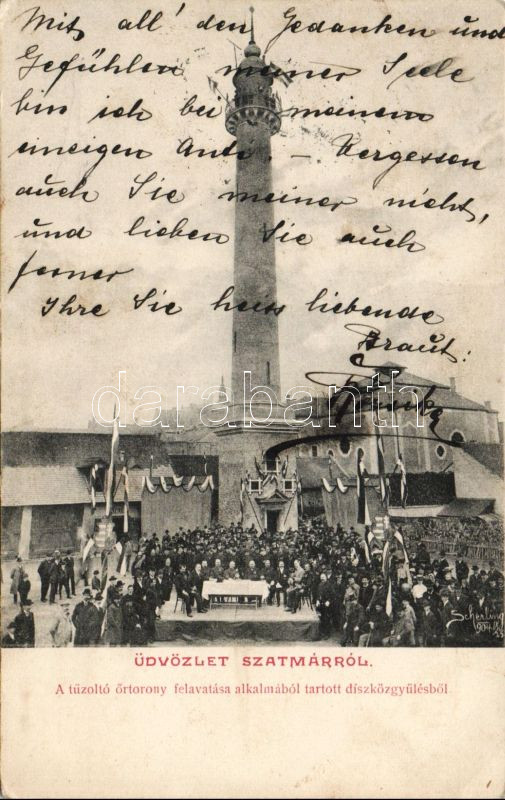 Mit all' den Gedanken und
Gefühlen meiner Seele
bin ich bei meinem
einzigen Anti. – Vergessen
auch Sie meiner nicht,
und lieben Sie auch
ferner
Ihre Sie heiss liebende
Braut:
darabanth.com
Scherling
ÜDVÖZLET SZATMÁRRÓL.
A tüzoltó őrtorony felavatása alkalmából tartott díszközgyűlésből.